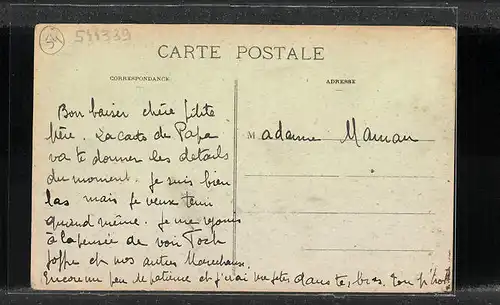 511339
CARTE POSTALE
CORRESPONDANCE
ADRESSE
Bon baiser chère petite
Mère. La carte de Papa
va te donner les détails
du moment. Je suis bien
las mais je veux tenir
quand même. Je me réjouis
à la pensée de voir Foch
Joffre et nos autres Marechaux.
Encore un peu de patience et j'irai me jeter dans tes bras. Ton p'
Madame Maman